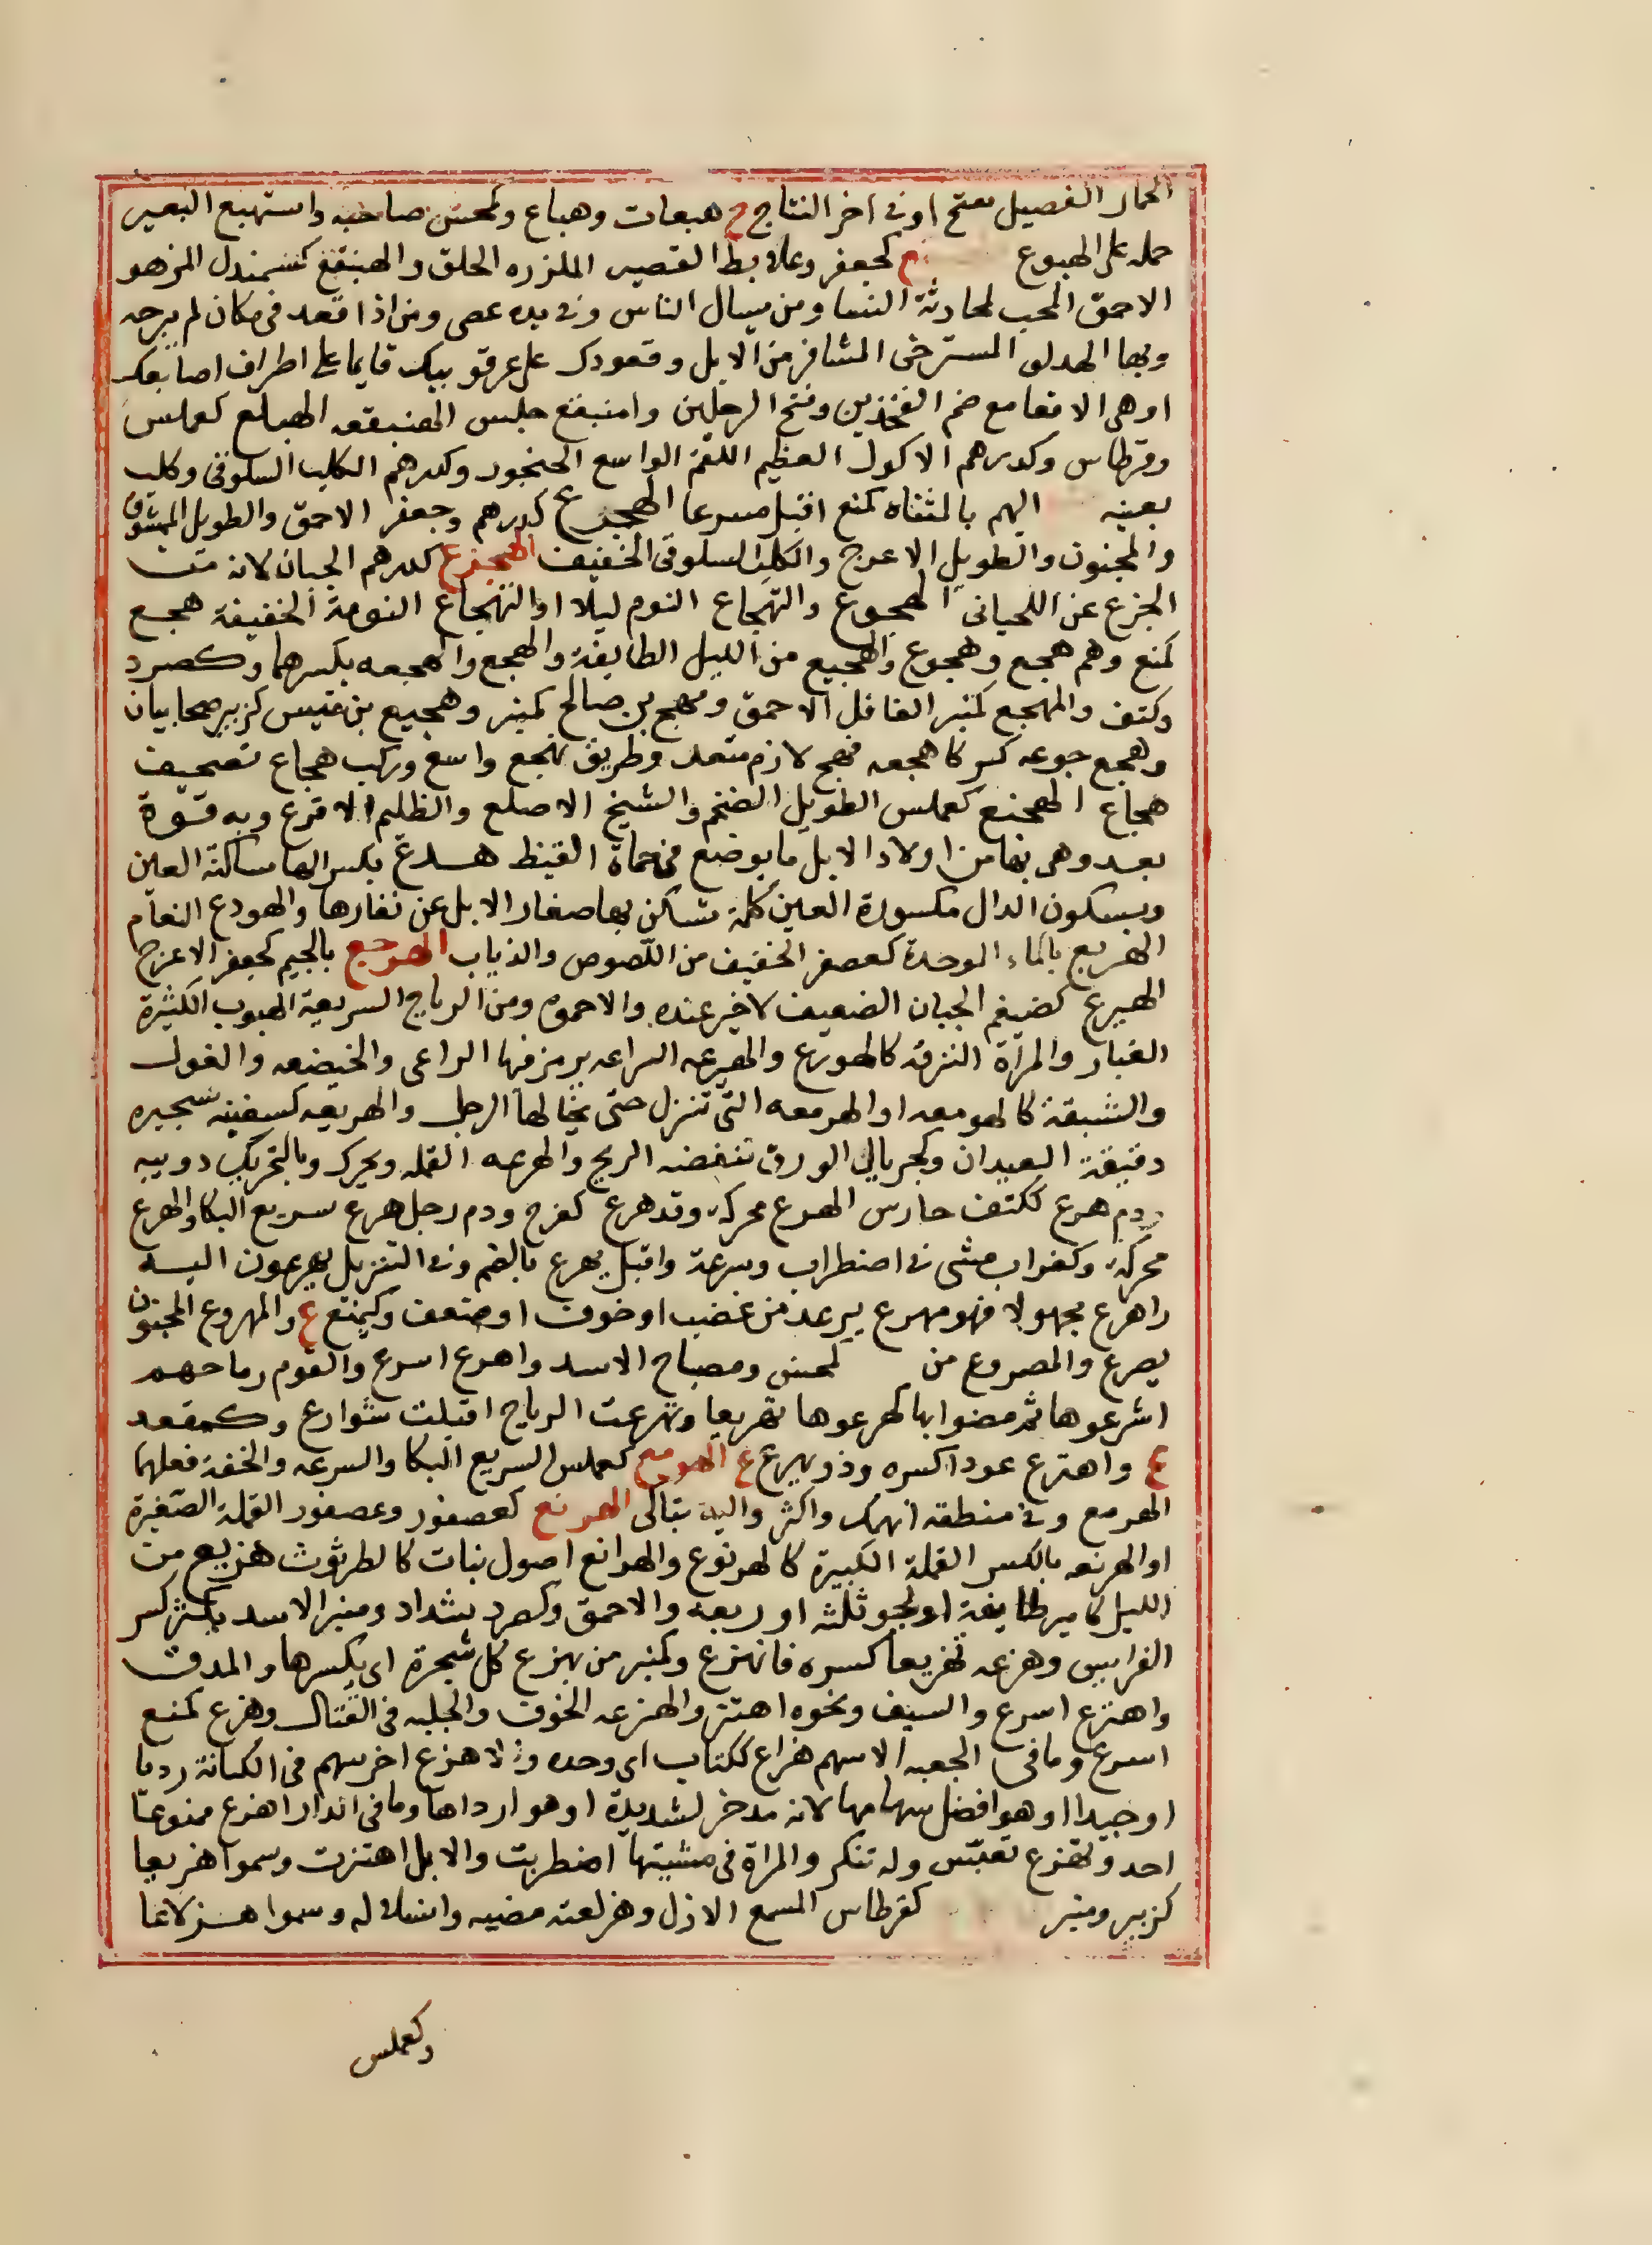 الحمار الفصيل ينتج او في اخر النتاج ج هبعات وهباع وكمحسن صاحبه واستهبع البعير
حمله على الهبوع كجعفر وعلابط القصير الملزز الخلق والهبنقع كشمندل المزهو
الاحمق المحب لمحادثة النسا ومن يسال الناس وفي يده عصى ومن اذا قعد في مكان لم يبرحه
وبها الهدلق المسترخى المشافر من الابل وقعودك على عرقوبيك قايما على اطراف اصابعك
او هى الاقعا مع ضم الفخذين وفتح الرجلين واهبنقع جلس الهنبقعه الهبلع كعملس
وقرطاس وكدرهم الاكول العظيم اللقم الواسع الحنجور وكدرهم الكلب السلوقى وكلب
بعينه الهم بالمثناه كمنع اقبل مسرعا الهجرع كدرهم وجعفر الاحمق والطويل الممشوق
والمجنون والطويل الاعرج والكلب السلوقى الخفيف الهجزع كدرهم الجبان لانه من
الجزع عن اللحيانى الهجوع والتهجاع النوم ليلا او التهجاع النومة الخفيفة هجع
كمنع وهم هجع وهجوع والهجيع من الليل الطايفة والهجع والهجعه بكسرهما وكصرد
وكتف والمهجع كمنبر الغافل الاحمق ومهجع بن صالح كمنبر وهجيع بن قيس كزبير صحابيان
وهجع جوعه كسر كاهجعه فهجع لازم متعد وطريق تهجع واسع وركب هجاع تصحيف
هجاع الهجنع كعملس الطويل الضخم والشيخ الاصلع والظليم الاقرع وبه قوة
بعد وهى بها من اولاد الابل ما يوضع فى حماة القيظ هدع بكسر الها ساكنة العين
وبسكون الدال مكسورة العين كلمة تسكن بها صغار الابل عن نفارها والهودع النعام
الهربع بالماء الموحدة كعصفر الخفيف من اللصوص والذياب الهرجع بالجيم كجعفر الاعرج
الهيرع كضيغم الجبان الضعيف لا خير عنده والاحمق ومن الرياح السريعة الهبوب الكثيرة
الغبار والمرأة النزقه كالهورع والهيرعه اليراعه يزمر فيها الراعى والخيضعه والغول
والشبقة كالهومعه او الهرمعه التى تنزل حتى يخالطها الرجل والهريعه كسفينه شجيره
دقيقة العيدان وكجريال الورق تنفضه الريح والهرعه القمله ويحرك وبالتحريك دويبه
ودم هرع ككتف جارس الهرع محركه وقد هرع كفرح ودم رجل هرع سريع البكا والهرع
محركه وكغراب مشى فى اضطراب وسرعة واقبل يهرع بالضم وفى التنزيل يهرعون اليه
واهرع مجهولا فهو مهرع يرعد من غضب او خوف او ضعف وكيمنع ع والمهروع المجنون
يصرع والمصروع من كمحسن ومصباح الاسد واهرع اسرع والقوم رماحهم
اشرعوها ثم مضوا بها كهرعوها تهريعا وتهرعت الرياح اقبلت شوارع وكمقعد
ع واهترع عودا كسره وذو يهرع ع الهرمع كعملس السريع البكا والسرعه والخفة فعلهما
اهرمع وفى منطقه انهمك واكثر واليه تباكى الهرنع كعصفور وعصفور القملة الصغيرة
او الهرنعه بالكسر القملة الكبيرة كالهرنوع والهرانع اصول نبات كالطرثوث هزيع من
الليل كامير طايفة او نحو ثلثه او ربعه والاحمق وكصرد وشداد ومنبر الاسد يكثر كسر
الفرايس وهزعه تهزيعا كسره فانهزع وكمنبر من يهزع كل شجرة اى يكسرها والمدق
واهتزع اسرع والسيف ونحوه اهتز والهزعه الخوف والجلبه فى القتال وهزع كمنع
اسرع وما فى الجعبه الا سهم هزاع ككتاب اى وحده والاهزع اخر سهم فى الكنانة رديا
او جيدا او هو افضل سهامها لانه مدخر لشديدة او هو ارداها وما فى الدار اهزع ممنوعا
احد وتهزع تعبس وله تنكر والمراة فى مشيتها اضطربت والابل اهتزت وسموا هزيعا
كزبير ومنبر كقرطاس السمع الازل وهزلعته مضيه وانسلاله وسموا هزلاعا
وكعملس